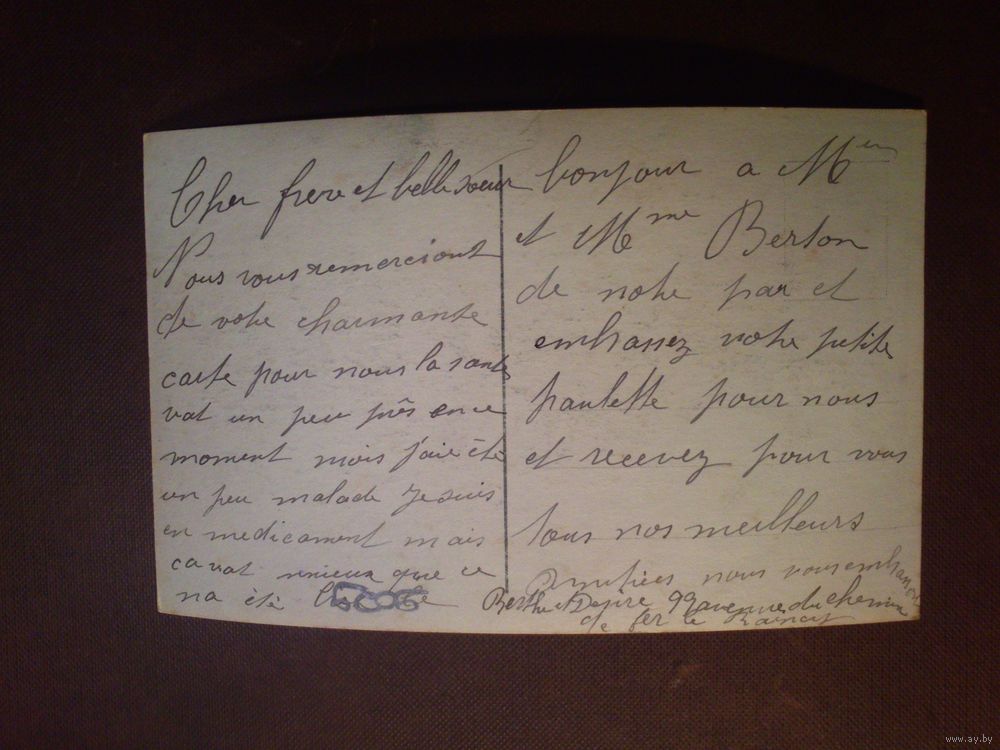 Cher frere et belle soeur
Nous vous remerciont
de votre charmante
carte pour nous la sante
vat un peu près en ce
moment mais j'aie été
un peu malade Je suis
en medicament mais
ca vat mieux que ce
na été
bonjour a Mr
et Mme Berton
de notre par et
embrassez votre petite
paulette pour nous
et recevez pour vous
tous nos meilleurs
Amitiées nous vous embrassons
Berthe et Desire 99 avenue du chemin
de fer le Raincy
www.ay.by